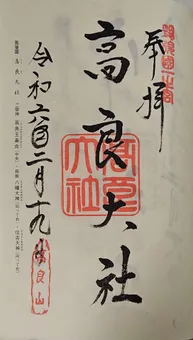 奉拝
高良大社
高良大社
令和六年二月十九日
高良山